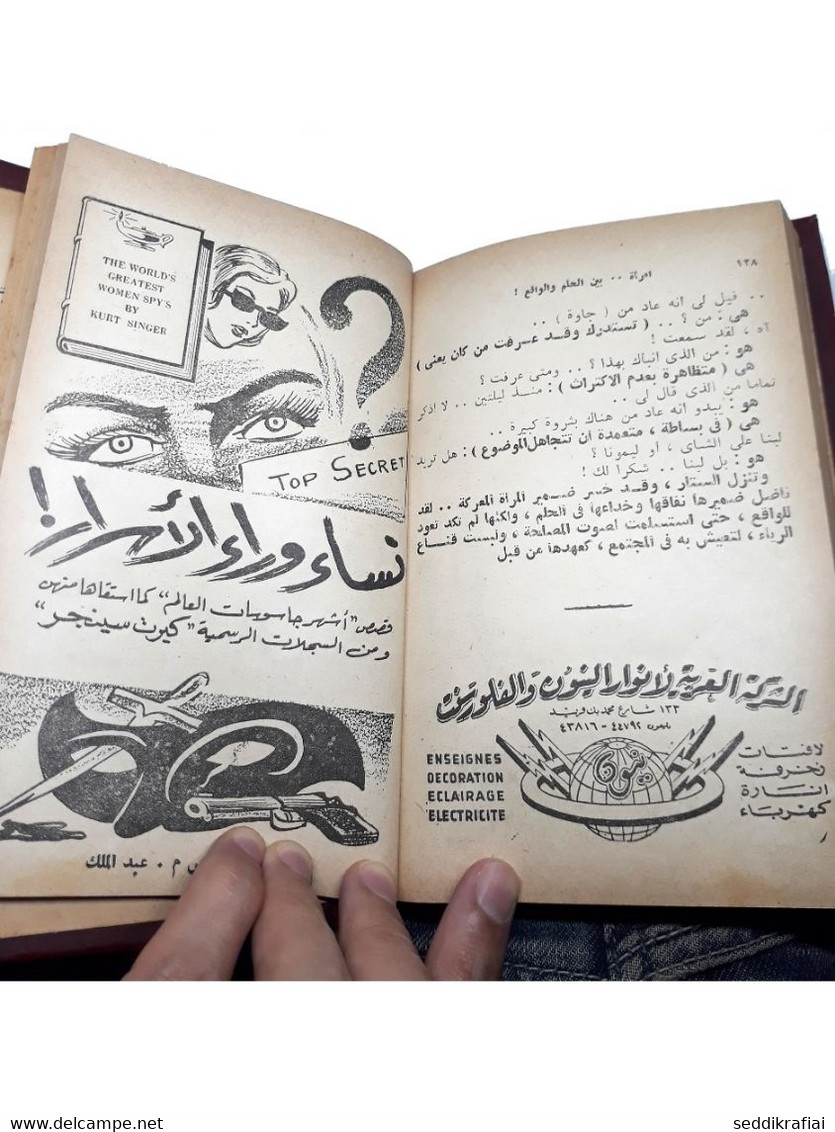 ١٢٨
امرأة .. بين الحلم والواقع !
.. قيل لى انه عاد من ( جاوة ) ..
هى : من ؟ .. ( تستدرك وقد عرفت من كان يعنى )
آه ، لقد سمعت !
هو : من الذى أنباك بهذا ؟ .. ومتى عرفت ؟
هى ( متظاهرة بعدم الاكتراث ) : منذ ليلتين .. لا اذكر
تماما من الذى قال لى ..
هو : يبدو انه عاد من هناك بثروة كبيرة ..
هى ( فى بساطة ، متعمدة ان تتجاهل الموضوع ) : هل تريد
لبنا على الشاى ، او ليمونا ؟
هو : بل لبنا .. شكرا لك !
وتنزل الستار ، وقد خسر ضمير المرأة المعركة .. لقد
ناضل ضميرها نفاقها وخداعها فى الحلم ، ولكنها لم تكد تعود
للواقع ، حتى استسلمت لصوت المصلحة ، ولبست قناع
الرياء ، لتعيش به فى المجتمع ، كعهدها من قبل
الشركة العربية لأنوار النيون والفلورسنت
١٣٣ شارع محمد بك فريد
تليفون ٤٤٧٩٢ - ٤٣٨١٦
لافتات
زخرفة
انارة
كهرباء
نيون
ENSEIGNES
DECORATION
ECLAIRAGE
ELECTRICITE
THE WORLD'S
GREATEST
WOMEN SPY'S
BY
KURT SINGER
TOP SECRET
نساء وراء الأسرار !
قصص "أشهر جاسوسات العالم" كما استقاها منهن
ومن السجلات الرسمية "كيرت سينجر"
م . عبد الملك
www.delcampe.net
seddikrafiai